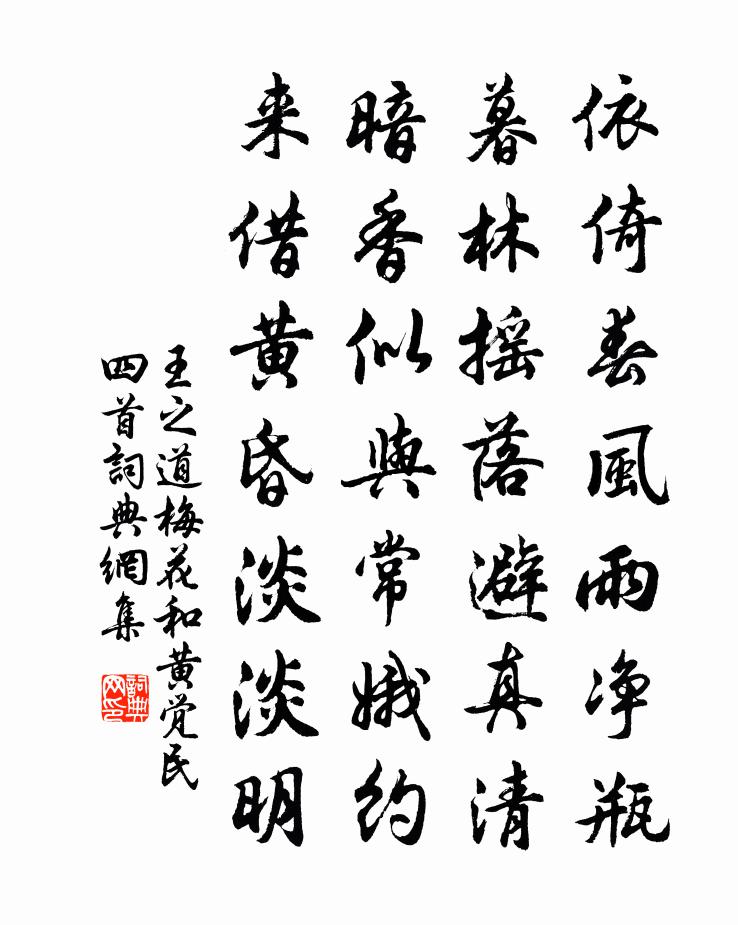 依倚春風兩净瓶
暮林摇落避真清
暗香似與常娥約
来借黄昏淡淡明
王之道梅花和黄觉民
四首詞典網集
詞典网印